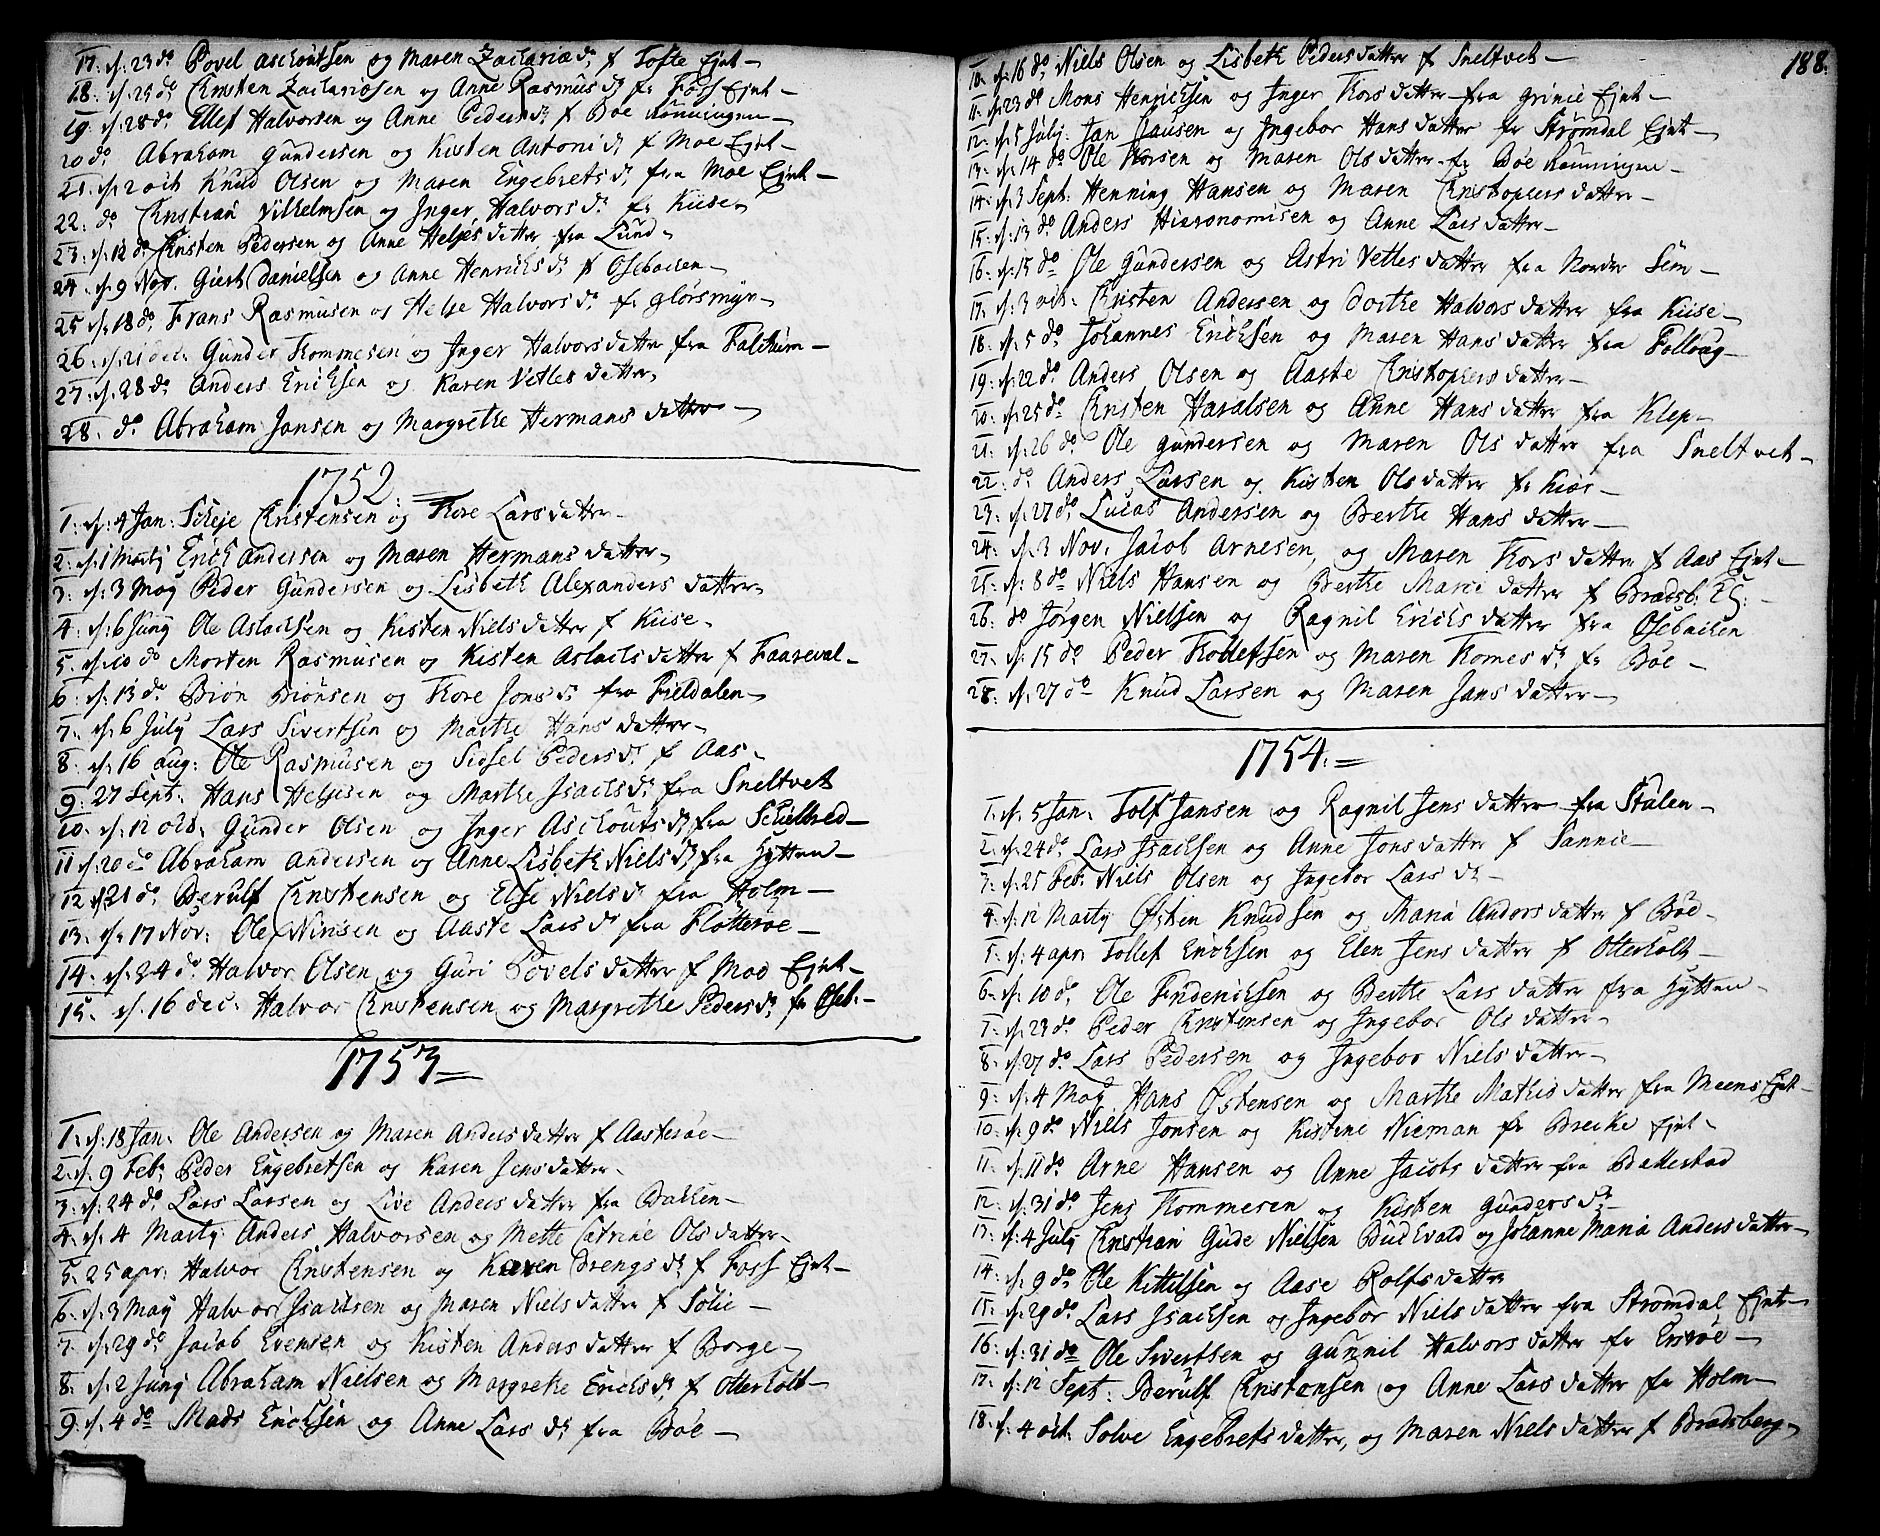 17. d. 23 do Povel Aschoutsen og Maren Zachariæ d. f Tofte Ejnt
18. d. 25 do Christen Zachariæsen og Anne Rasmus d. fr Foss Ejnt
19. d. 28 do Ellef Halvorsen og Anne Peders d. f Böe Rönningen
20 do Abraham Gundersen og Kisten Antoni d. f Moe Ejnt
21. d. 2 oct Knud Olsen og Maren Engebrets d. fra Moe Ejnt
22. do Christian Vilhelmsen og Inger Halvors d. fr Kiise
23. d. 12 do Christen Pedersen og Anne Heljes datter fra Lund
24. d. 9 Nov. Giert Danielsen og Anne Henrichs d. f Osebacken
25 d. 18 do Frans Rasmusen og Helje Halvors d. fr Glorsmyr
26. d. 21 dec. Gunder Tommesen og Inger Halvorsdatter fra Falckum
27. d. 28 do Anders Ericksen og Karen Vetles datter
28. do Abraham Jansen og Margrethe Hermans datter
1752.
1. d. 4 Jan: Scheje Christensen og Tore Lars datter
2. d. 1 Martj Erich Andersen og Maren Hermans datter
3. d. 3 Maj Peder Gundersen og Lisbeth Alexanders datter
4. d. 6 Junj Ole Aslacksen og Kisten Niels datter f Kiise
5. d. 10 do Morten Rasmusen og Kisten Aslachsdatter f Faareval
6. d. 13 do Biön Biönsen og Tore Jons d. fra Fieldalen
7. d. 6 July Lars Sivertsen og Marthe Hans datter
8. d. 16 aug: Ole Rasmusen og Sidsel Peders d. f Aas
9. 27 Sept. Hans Heljesen og Marthe Isachs d. fra Sneltvet
10. d. 12 oct. Gunder Olsen og Inger Aschouts d. fra Schielbred
11 d. 20 do Abraham Andersen og Anne Lisbeth Niels d. fra Hytten
12 d. 21 do Berulf Christensen og Else Niels d. fra Holm
13. d. 17 Nov: Ole Nirisen og Aaste Lars d. fra Flötteröe
14. d. 24 do Halvor Olsen og Guri Povels datter f Moe Ejnt
15. d. 16 dec: Halvor Christensen og Margrethe Peders d. fr Oseb.
1753
1. d. 18 Jan: Ole Andersen og Maren Anders datter f Aasteröe
2. d. 9 Feb: Peder Engebretsen og Karen Jens datter
3. d. 24 do Lars Larsen og Live Anders datter fra Backen
4. d. 4 Martj Anders Halvorsen og Mette Catrine Ols datter
5. 25 apr: Halvor Christensen og Karen Drengs d. f Foss Ejnt
6. d. 3 Maj Halvor Isacksen og Maren Niels datter f Solie
7. d. 29 do Jacob Evensen og Kisten Anders datter f Borge
8. d. 2 Junj Abraham Nielsen og Margrethe Erichs d. f Otterholt
9. d. 4 do Mads Ericksen og Anne Lars d. fra Böe
188.
10. d. 16 do Niels Olsen og Lisbeth Peders datter f Sneltvet
11. d. 23 do Mons Henricksen og Inger Tors datter fra Grinie Ejnt
12. d. 5 Julj Jan Clausen og Ingebor Hans datter fr Strömdal Ejnt
13. d. 14 do Ole Torsen og Maren Olsdatter fr Böe Rönningen
14. d. 3 Sept. Henning Hansen og Maren Christophers datter
15. d. 13 do Anders Hieronomisen og Anne Lars datter
16. d. 15 do Ole Gundersen og Astri Vetles datter fra Norder Sem
17. d. 3 oct: Christen Andersen og Dorthe Halvors datter fra Kiise
18. d. 5 do Johannes Ericksen og Maren Hans datter fra Follaug
19. d. 22 do Anders Olsen og Aaste Christophers datter
20. d. 25 do Christen Haralsen og Anne Hans datter fra Klep
21. d. 26 do Ole Gundersen og Maren Ols datter fra Sneltvet
22. do Anders Larsen og Kisten Ols datter fr Kiös
23. d. 27 do Lucas Andersen og Berthe Hans datter
24. d. 2 Nov. Jacob Arnesen, og Maren Tors datter f Aas Ejnt
25. d. 8 do Niels Hansen og Berthe Marie datter f Bradsb: Ej:
26. do Jörgen Nielsen og Ragnil Erichs datter fra Osebacken
27. d. 15 do Peder Tollefsen og Maren Tomes d. fr Böe
28. d. 27 do Knud Larsen og Maren Jans datter
1754.
1. d. 5 Jan: Tolf Jansen og Ragnil Jens datter fra Stulen
2. d. 24 do Lars Isacksen og Anne Jonsdatter f Sannie
3. d. 25 Feb. Niels Olsen og Ingebor Lars d.
4. d. 12 Martj Östen Knudsen og Maria Anders datter f Böe
5. d. 4 apr. Tollef Ericksen og Elen Jens datter f Otterholt
6. d. 10 do Ole Friderichsen og Berthe Lars datter fra Hytten
7. d. 23 do Peder Christensen og Ingebor Ols datter
8. d. 27 do Lars Pedersen og Ingebor Niels datter
9. d. 4 Maj Hans Östensen og Marthe Mathis datter fra Meens Ejnt
10. d. 9 do Niels Jonsen og Kistine Nieman fr Brecke Ejnt
11. d. 11 do Arne Hansen og Anne Jacobs datter fra Ballestad
12. d. 31 do Jens Tommesen og Kisten Gunders d.
13. d. 4 July Christian Gude Nielsen Buchvald og Johanne Maria Anders datter
14. d. 9 do Ole Kittilsen og Aase Rolfs datter
15. d. 29 do Lars Isacksen og Ingebor Niels datter fra Strömdal Ejnt
16. d. 31 do Ole Sivertsen og Gunnil Halvors datter fr Eriröe
17. d. 12 Sept. Berulf Christensen og Anne Lars datter fr Holm
18. d. 4 oct. Solve Engebrets datter, og Maren Niels datter f Bradsberg